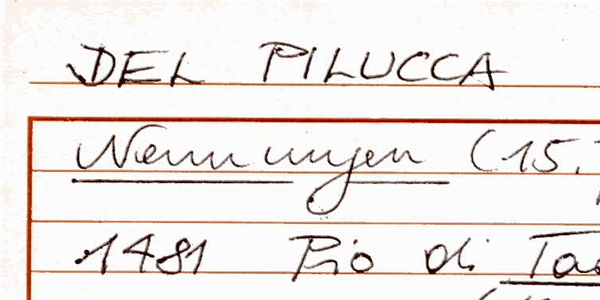 DEL PILUCCA
Nennungen (15.
1481 Pio di Tas